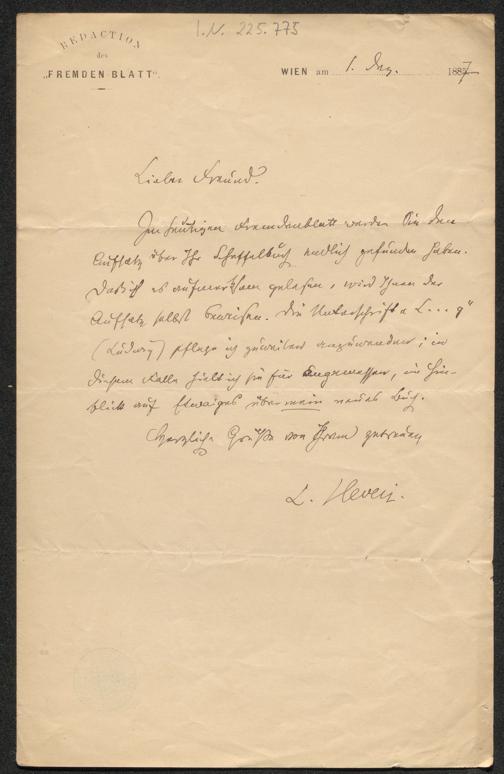 I.N. 225.775
REDACTION
des
„FREMDEN-BLATT“.
WIEN am 1. Dez. 1887
Lieber Freund!
Im heutigen Fremdenblatt werden Sie den
Aufsatz über Ihr Scheffelbuch endlich gefunden haben.
Daß ich es aufmerksam gelesen, wird Ihnen der
Aufsatz selbst beweisen. Die Unterschrift „L...g“
(Ludwig) pflege ich zuweilen anzuwenden; in
diesem Falle hielt ich sie für angemessen, im Hin-
blick auf Etwaiges über mein neues Buch.
Herzliche Grüße von Ihrem getreuen
L. Hevesi.